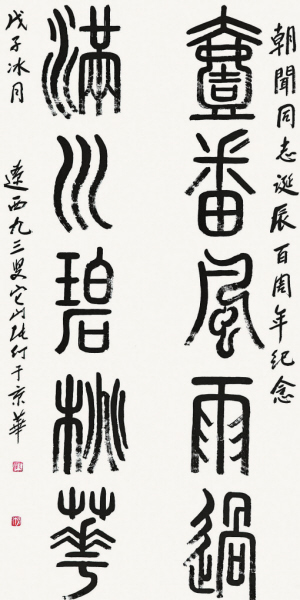 朝聞同志誕辰百周年紀念
壹番風雨過
滿川碧桃華
戊子冰月 遼西九三叟它山張仃于京華